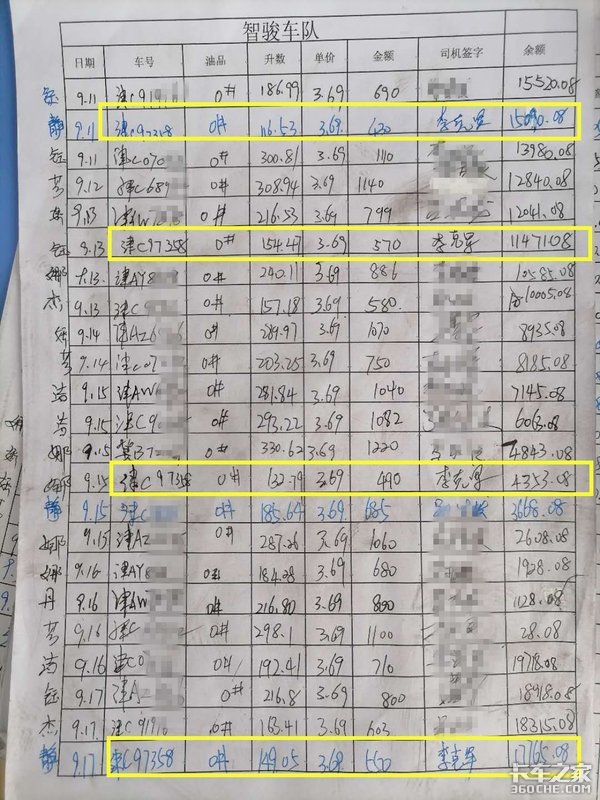 智骏车队
日期 车号 油品 升数 单价 金额 司机签字 余额
钰 9.11 津C919 0# 186.99 3.69 690 15520.08
静 9.11 津C97358 0# 116.53 3.69 430 李克军 15090.08
钰 9.11 津C070 0# 300.81 3.69 1110 13980.08
芳 9.12 津C689 0# 308.94 3.69 1140 12840.08
9.13 津AW 0# 216.53 3.69 799 12041.08
钰 9.13 津C97358 0# 154.47 3.69 570 李克军 11471.08
娜 9.13 津AY8 0# 240.11 3.69 886 10585.08
杰 9.13 津C9 0# 157.18 3.69 580 10005.08
钰 9.14 津AZ6 0# 289.97 3.69 1070 8935.08
芳 9.14 津C07 0# 203.25 3.69 750 8185.08
洁 9.15 津AW 0# 281.84 3.69 1040 7145.08
芳 9.15 津C9 0# 293.22 3.69 1082 6063.08
娜 9.15 冀B72 0# 330.62 3.69 1220 4843.08
娜 9.15 津C97358 0# 132.79 3.69 490 李克军 4353.08
静 9.15 津C 0# 185.64 3.69 685 3668.08
娜 9.15 津AZ 0# 287.26 3.69 1060 2608.08
娜 9.16 津AY8 0# 184.28 3.69 680 1928.08
丹 9.16 津AW 0# 216.80 3.69 800 1128.08
芳 9.16 津C 0# 298.1 3.69 1100 28.08
洁 9.16 津C0 0# 192.41 3.69 710 19718.08
钰 9.17 津A 0# 216.8 3.69 800 18918.08
杰 9.17 津C919 0# 163.41 3.69 603 18315.08
静 9.17 津C97358 0# 149.05 3.69 550 李克军 17765.08
卡车之家
360CHE.COM